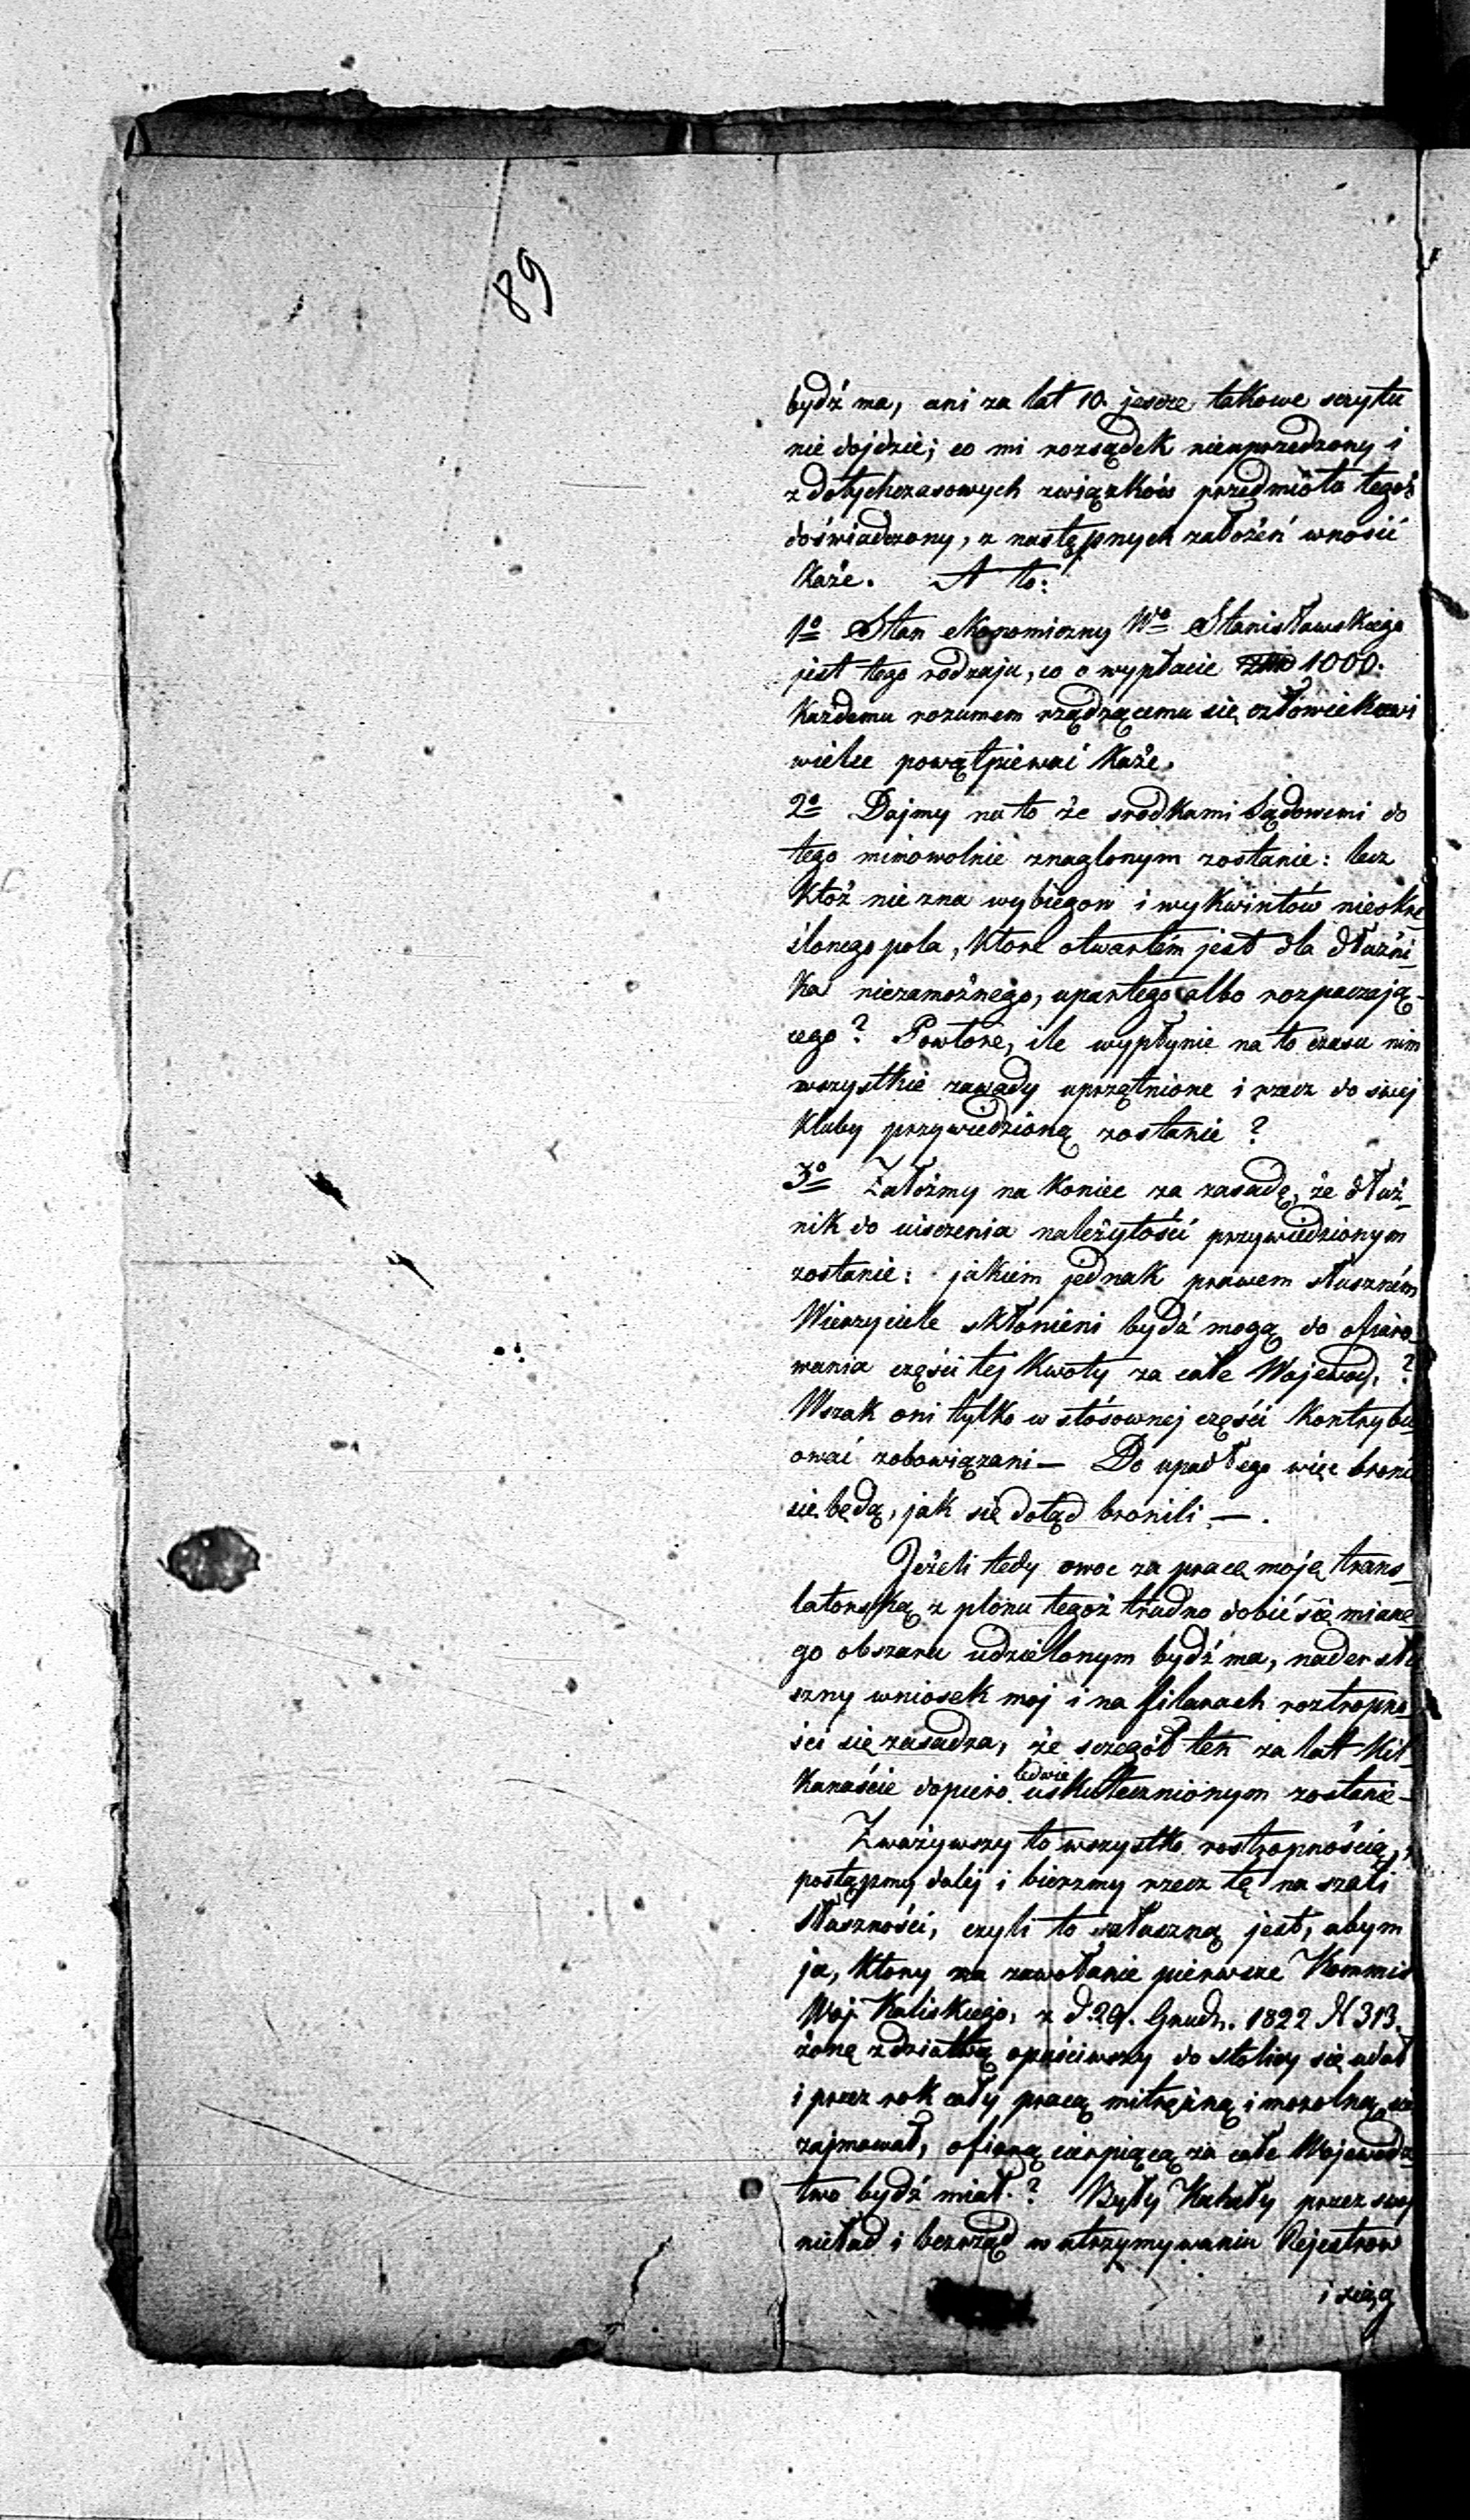 89
bydź ma, ani za lat 10. jescze takowe sczytu
nie dojdzie; co mi rozsądek nieuprzedzony i
z dotychczasowych związków przedmiotu tegoż
doświadczony, z następnych założeń wnosić
każe. A to:
1º Stan ekonomiczny Wº Stanisławskiego
jest tego rodzaju, co o wypłacie 1000.
każdemu rozumem rządzącemu się człowiekowi
wielce powątpiewać każe.
2º Dajmy na to że srodkami Sądowemi do
tego mimowolnie znaglonym zostanie: lecz
któż nie zna wybiegow i wykwintów nieokre
ślonego pola, które otwartém jest dla dłużni-
ka niezamożnego, upartego albo rozpaczają-
cego? Powtóre, ile wypłynie na to czasu nim
wszystkie zawady uprzątnione i rzecz do swej
kluby przywiedzioną zostanie?
3º Załóżmy na koniec za zasadę, że dłuż-
nik do uisczenia należytości przywiedzionym
zostanie: jakiem jednak prawem słuszném
Wierzyciele skłonieni bydź mogą do ofiaro-
wania części tej kwoty za całe Wojewod.?
Wszak oni tylko w stósownej części kontrybu-
ować zobowiązani— Do upadłego więc bronić
się będą, jak się dotąd bronili —.
Jeżeli tedy owoc za pracę moję trans-
latorską z plonu tegoż trudno dobić się miane-
go obszaru udzielonym bydź ma, nader słu
szny wniosek moj i na filarach roztropno-
ści się zasadza, że sczegół ten za lat kil-
kanaście dopiero ledwie uskutecznionym zostanie—
Zważywszy to wszystko rostropnością,
postąpmy daléj i bierzmy rzecz tę na szali
słuszności, czyli to słuszną jest, abym
ja, ktory na zawołanie pierwsze Kommis
Woj. Kaliskiego, z d. 29. Grudn. 1822 N 313.
żonę z dziatwą opuściwszy do stolicy się udał
i przez rok cały pracą mitrężną i mozolną się
zajmował, ofiarą cierpiącą za całe Wojewódz-
two bydź miał.? Były Kahały przez swój
nieład i bezrząd w utrzymywaniu Rejestrow
i xiąg